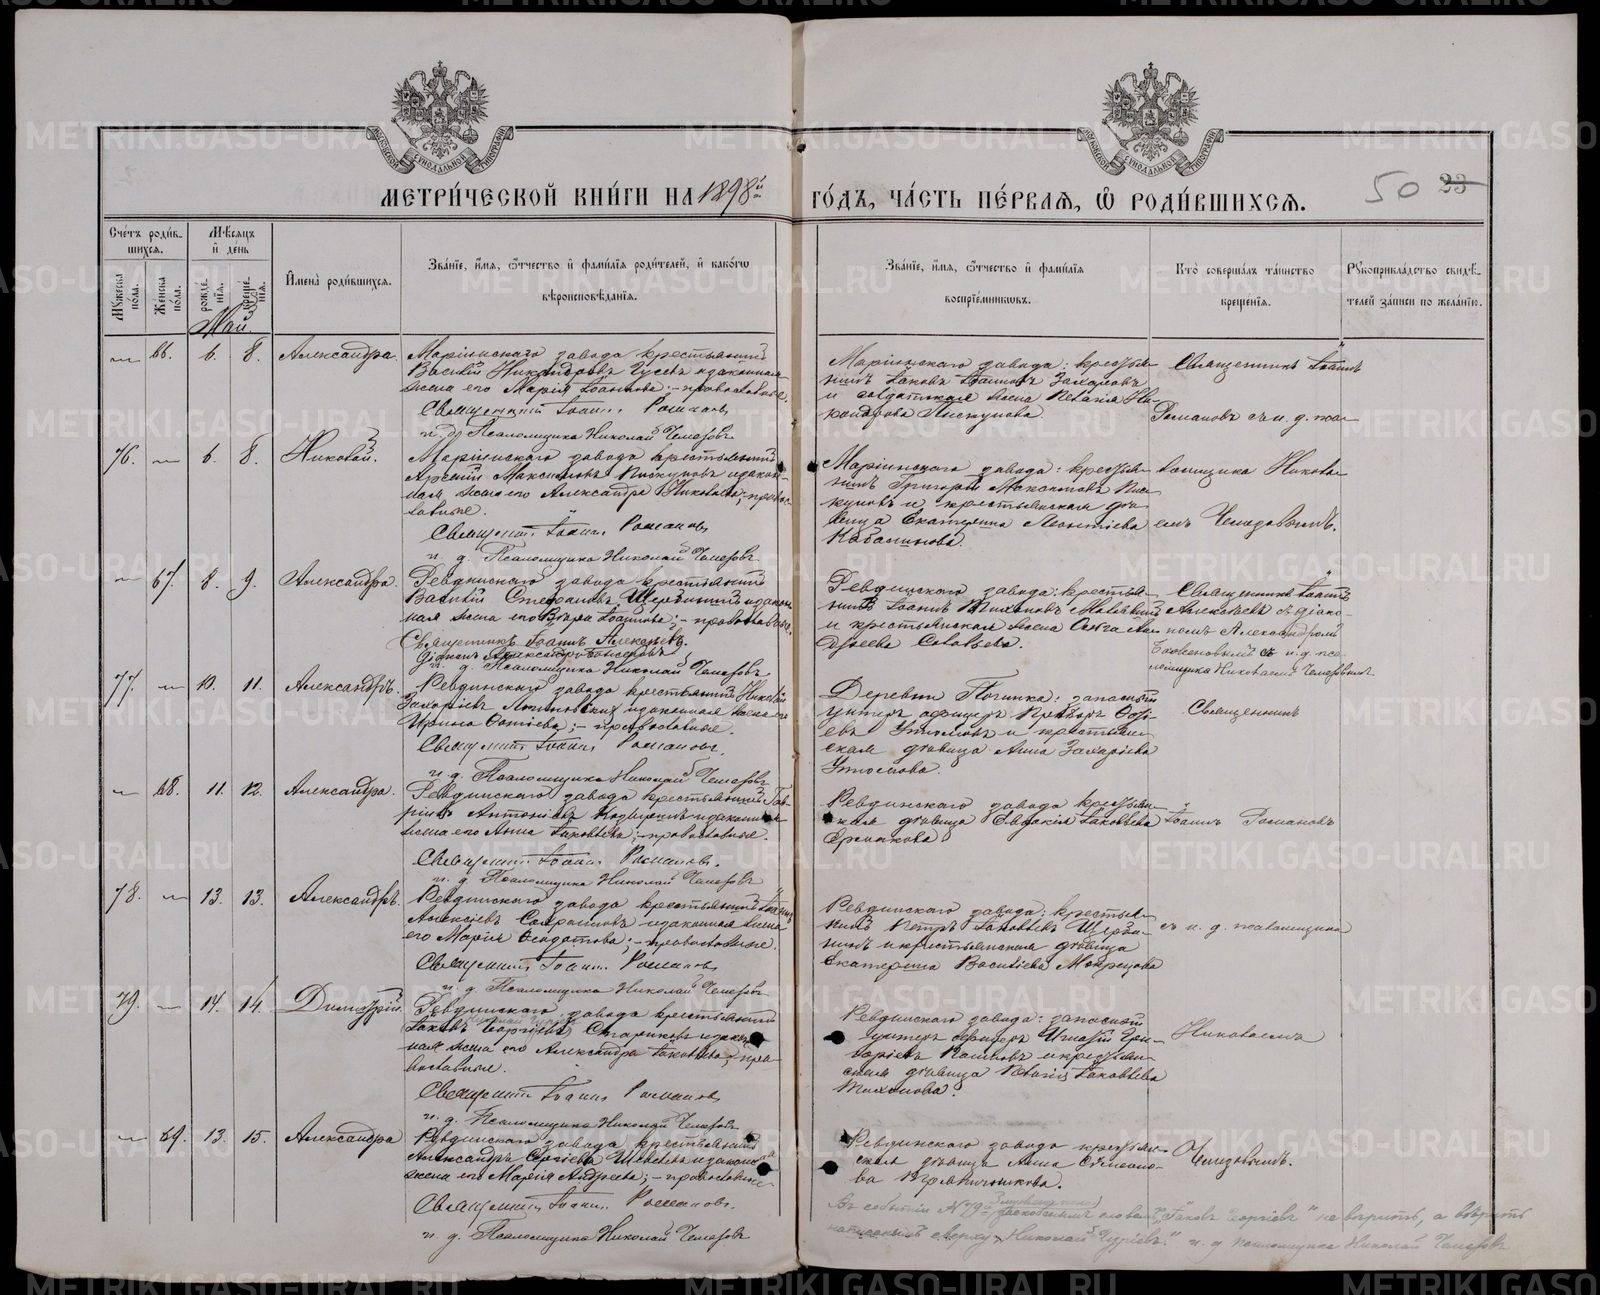 МЕТРИ́ЧЕСКОЙ КНИ́ГИ НА 1898й
ГО́ДЪ, ЧА́СТЬ ПЕ́РВАѦ, Ѿ РОДИ́ВШИХСѦ.
50 23
Сче́тъ роди́в-
шихсѧ.
Мѣ́сѧцъ
и҆ де́нь
Мꙋ́жеска
по́ла.
Же́нска
по́ла.
рожде́-
нїѧ.
креще́-
нїѧ.
Май.
И҆мена̀ роди́вшихсѧ.
Зва́нїе, и҆́мѧ, ѻ҆́тчество и҆ фами́лїѧ роди́телей, и҆ како́гѡ
вѣроисповѣ́данїѧ.
Зва́нїе, и҆́мѧ, ѻ҆́тчество и҆ фами́лїѧ
воспрїе́мниковъ.
Кто̀ соверша́лъ та́инство
креще́нїѧ.
Рꙋкоприкла́дство свидѣ́-
телей за́писи по жела́нїю.
66. 6. 8. Александра.
Маріинскаго завода крестьянинъ
Василій Никандровъ Гусевъ и законная
жена его Марія Іоаннова; – православные.
Священникъ Іоаннъ Романовъ
и. д. Псаломщика Николай Чемезовъ
Маріинскаго завода: крестья-
нинъ Іаковъ Іоанновъ Захаровъ
и солдатская жена Пелагія Ни-
кандрова Пискунова.
Священникъ Іоаннъ
Романовъ съ и. д. пса-
76. 6. 8. Николай.
Маріинскаго завода крестьянинъ
Арсеній Максимовъ Пискуновъ и закон-
ная жена его Александра Николаева; – правос-
лавные.
Священникъ Іоаннъ Романовъ
и. д. Псаломщика Николай Чемезовъ
Маріинскаго завода: крестья-
нинъ Григорій Максимовъ Пис-
куновъ и крестьянская дѣ-
вица Екатерина Леонтіева
Кабалинова.
ломщика Никола-
емъ Чемезовымъ.
67. 8. 9. Александра.
Ревдинскаго завода крестьянинъ
Василій Стефановъ Щербининъ и закон-
ная жена его Вѣра Іоаннова; – православные.
Священникъ Іоаннъ Алексѣевъ.
Діаконъ Александръ Баженовъ
и. д. Псаломщика Николай Чемезовъ
Ревдинскаго завода: крестья-
нинъ Іоаннъ Тихоновъ
и крестьянская жена Ольга Ан-
дреева Соловьева.
Священникъ Іоаннъ
Алексѣевъ съ діако-
номъ Александромъ
Баженовымъ и и. д. пса-
ломщика Николаемъ Чемезовымъ.
77. 10. 11. Александръ.
Ревдинскаго завода крестьянинъ Николай
Захаріевъ и законная жена его
Ирина Фотіева; – православные.
Священникъ Іоаннъ Романовъ
и. д. Псаломщика Николай Чемезовъ
Деревни Починка: запасный
унтеръ офицеръ
и крестьян-
ская дѣвица Анна Захаріева
Священникъ
68. 11. 12. Александра.
Ревдинскаго завода крестьянинъ Гав-
ріилъ Антоніевъ и законная
жена его Анна Іаковлева; – православные.
Священникъ Іоаннъ Романовъ.
и. д. Псаломщика Николай Чемезовъ
Ревдинскаго завода крестьян-
ская дѣвица Евдокія Іаковлева
Ермакова
Іоаннъ Романовъ
78. 13. 13. Александръ.
Ревдинскаго завода крестьянинъ Іоаннъ
Алексіевъ Сафроновъ и законная жена
его Марія Ѳеодотова; – православные.
Священникъ Іоаннъ Романовъ
и. д. Псаломщика Николай Чемезовъ
Ревдинскаго завода: крестья-
нинъ Петръ Іаковлевъ Щерби-
нинъ и крестьянская дѣвица
Екатерина Василіева Мокрецова
съ и. д. псаломщика
79. 14. 14. Димитрій.
Ревдинскаго завода крестьянинъ
Іаковъ Георгіевъ Стариковъ и закон-
ная жена его Александра Іаковлева; – пра-
вославные.
Священникъ Іоаннъ Романовъ
и. д. Псаломщика Николай Чемезовъ
Ревдинскаго завода: запасный
унтеръ офицеръ Игнатій Гри-
горіевъ и крестьян-
ская дѣвица Пелагія Іаковлева
Тихонова.
Николаемъ
69. 13. 15. Александра
Ревдинскаго завода крестьянинъ
Александръ Сергіевъ и законная
жена его Марія Андреева; – православные.
Священникъ Іоаннъ Романовъ.
и. д. Псаломщика Николай Чемезовъ
Ревдинскаго завода крестьян-
ская дѣвица Анна Симеоно-
ва
Чемезовымъ.
Въ событіи № 79й слова „Іаковъ Георгіевъ“ не вѣрить, а вѣрить
написанныя сверху „Николай“ и. д. псаломщика Николай Чемезовъ
METRIKI.GASO-URAL.RU